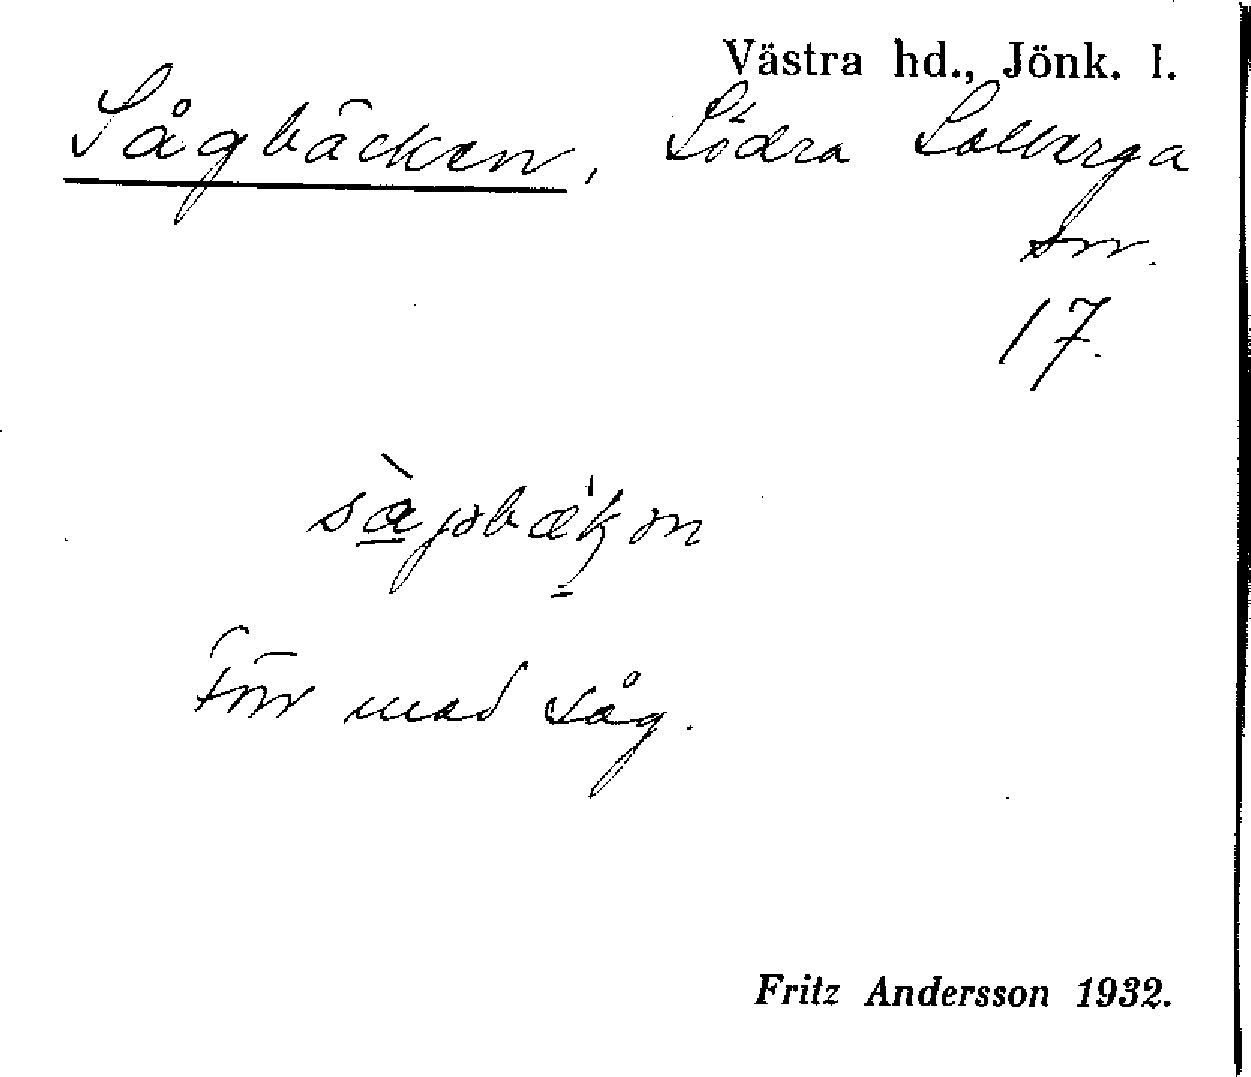 Västra hd., Jönk. l.
Sågbäcken, Södra Solberga
sn.
17.
För med såg.
Fritz Andersson 1932.